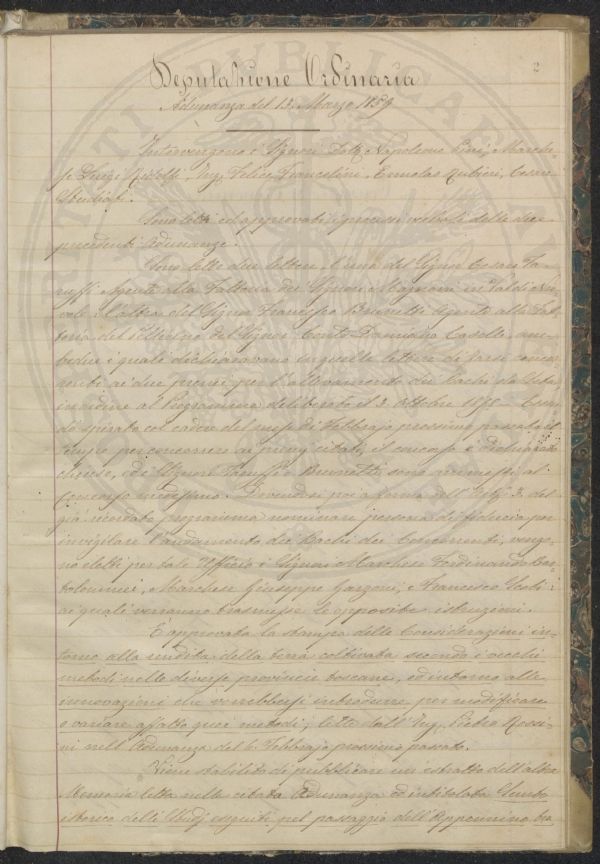 2
Deputazione Ordinaria
Adunanza del 13. Marzo 1859
Intervengono i Signori Dott. Napoleone Pini, Marche-
se Luigi Ridolfi, Ing. Felice Francolini, Ermolao Rubieri, Cesare
Studiati.
Sono letti ed approvati i processi verbali delle due
precedenti Adunanze.
Sono lette due lettere, l'una del Signor Cesare Ta-
ruffi Agente alla Fattoria dei Signori Magnani in Val di Nie-
vole l'altra del Signor Francesco Brunetti Agente alla Fat-
toria del del Signor Conte Damiano Caselli, am-
bedue i quali dichiaravano in quelle lettere di voler concor-
rere ai due premj per l'allevamento dei Bachi da Seta
in ordine al Programma deliberato il 3. Ottobre 1858. Essen-
do spirato col cadere del mese di Febbrajo prossimo passato il
tempo per concorrere ai premj citati, il concorso è dichiarato
chiuso, ed i Signori Taruffi e Brunetti sono ammessi al
Concorso medesimo. Dovendosi poi a forma dell'Art. 3. del
già ricordato programma nominare persona di fiducia per
invigilare l'andamento dei Bachi dei Concorrenti, vengo-
no eletti per tale Ufficio i Signori Marchese Ferdinando Bar-
tolommei, Marchese Giuseppe Garzoni, e Francesco Scoti
ai quali verranno trasmesse le opposite istruzioni.
È approvata la stampa delle Considerazioni in-
torno alla rendita della terra coltivata secondo i vecchi
metodi nelle diverse provincie toscane, ed intorno alle
innovazioni che vorrebbersi introdurre per modificare
o variare affatto quei metodi; lette dall'Ing. Pietro Rossi-
ni nell'Adunanza del 6. Febbrajo prossimo passato.
Viene stabilito di pubblicare un estratto dell'altra
Memoria letta nella citata Adunanza ed intitolata Sunto
istorico delli Studj eseguiti pel passaggio dell'Appennino tra